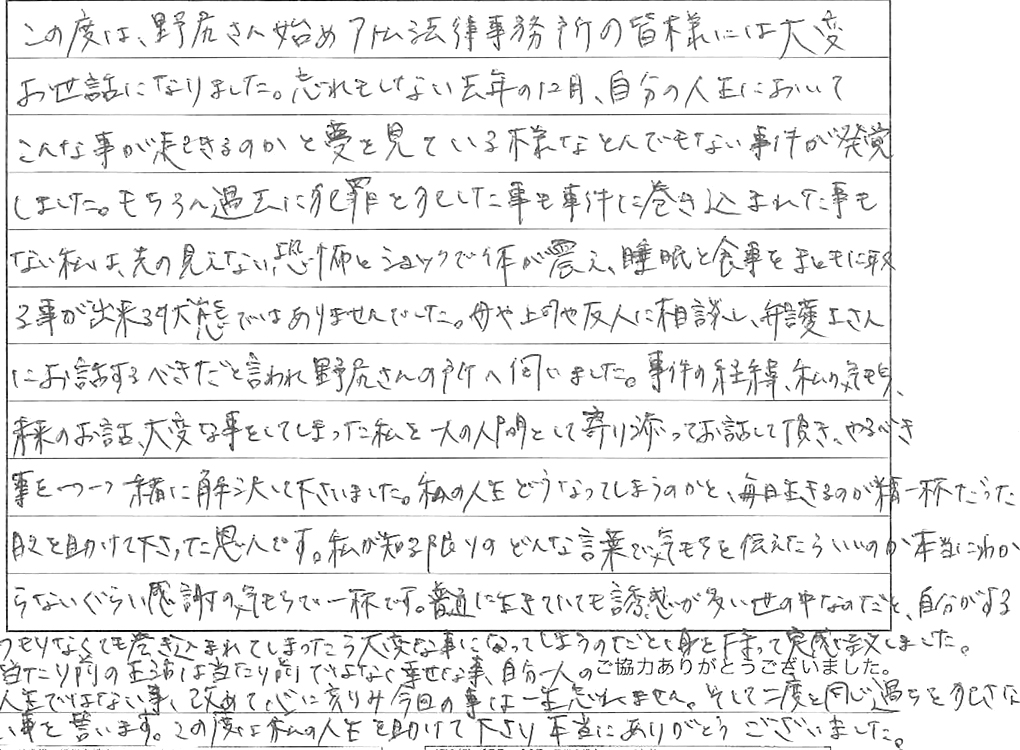 この度は、野尻さん始めアトム法律事務所の皆様には大変
お世話になりました。忘れもしない去年の12月、自分の人生において
こんな事が起きるのかと夢を見ている様なとんでもない事件が発覚
しました。もちろん過去に犯罪を犯した事も事件に巻き込まれた事も
ない私は、先の見えない恐怖とショックで体が震え、睡眠と食事をまともに取
る事が出来る状態ではありませんでした。母や上司や友人に相談し、弁護士さん
にお話するべきだと言われ野尻さんの所へ伺いました。事件の経緯、私の気持ち、
未来のお話、大変な事をしてしまった私を一人の人間として寄り添ってお話して頂き、やるべき
事を一つ一つ一緒に解決して下さいました。私の人生どうなってしまうのかと、毎日生きるのが精一杯だった
私を助けて下さった恩人です。私が知る限りのどんな言葉で気持ちを伝えたらいいのか本当にわか
らないぐらい感謝の気持ちで一杯です。普通に生きていても誘惑が多い世の中なのだと、自分がする
つもりなくても巻き込まれてしまったら大変な事になってしまうのだと身を持って実感致しました。
当たり前の生活は当たり前ではなく幸せな事、自分一人の
ご協力ありがとうございました。
人生ではない事、改めて心に刻み今回の事は一生忘れません。そして二度と同じ過ちを犯さな
い事を誓います。この度は私の人生を助けて下さり本当にありがとうございました。